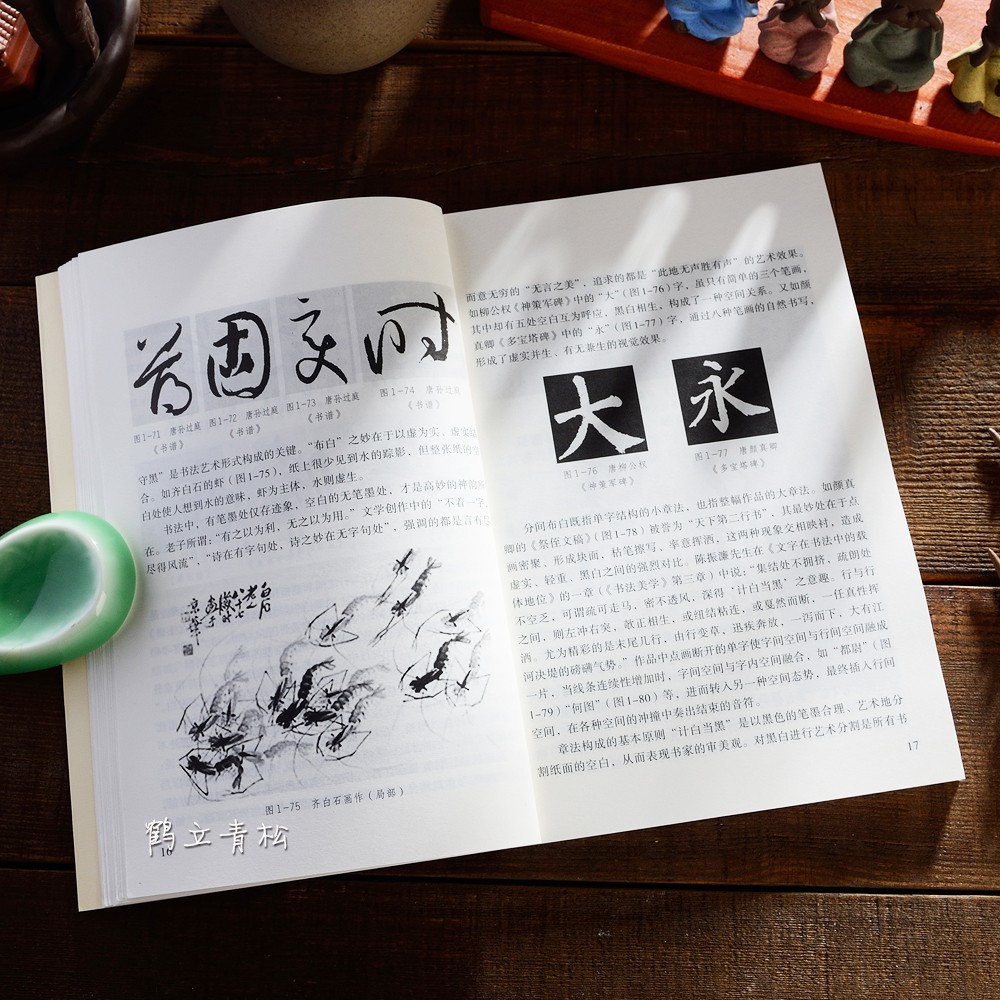 为 因 交 时
图1-71 唐孙过庭《书谱》
图1-72 唐孙过庭《书谱》
图1-73 唐孙过庭《书谱》
图1-74 唐孙过庭《书谱》
守黑”是书法艺术形式构成的关键。“布白”之妙在于以虚为实、虚实结
合。如齐白石的虾(图1-75),纸上很少见到水的踪影,但整张纸的空
白处使人想到水的意味,虾为主体,水则虚生。
书法中,有笔墨处仅存迹象,空白的无笔墨处,才是高妙的神韵所
在。老子所谓:“有之以为利,无之以为用。”文学创作中的“不着一字,
尽得风流”,“诗在有字句处,诗之妙在无字句处”,强调的都是言有尽
白石
老人
京华
图1-75 齐白石画作(局部)
16
鹤立青松
而意无穷的“无言之美”,追求的都是“此地无声胜有声”的艺术效果。
如柳公权《神策军碑》中的“大”(图1-76)字,虽只有简单的三个笔画,
其中却有五处空白互为呼应,黑白相生,构成了一种空间关系。又如颜
真卿《多宝塔碑》中的“永”(图1-77)字,通过八种笔画的自然书写,
形成了虚实并生、有无兼生的视觉效果。
大 永
图1-76 唐柳公权《神策军碑》
图1-77 唐颜真卿《多宝塔碑》
分间布白既指单字结构的小章法,也指整幅作品的大章法。如颜真
卿的《祭侄文稿》(图1-78)被誉为“天下第二行书”,其最妙处在于点
画密聚、形成块面,枯笔擦写、率意挥洒,这两种现象交相映衬,造成
虚实、轻重、黑白之间的强烈对比。陈振濂先生在《文字在书法中的载
体地位》的一章(《书法美学》第三章)中说:“集结处不拥挤,疏朗处
不空乏,可谓疏可走马,密不透风,深得‘计白当黑’之意趣。行与行
之间,则左冲右突,欹正相生,或纽结粘连,或戛然而断,一任真性挥
洒。尤为精彩的是末尾几行,由行变草,迅疾奔放,一泻而下,大有江
河决堤的磅礴气势。”作品中点画断开的单字使字间空间与行间空间融成
一片,当线条连续性增加时,字间空间与字内空间融合,如“都尉”(图
1-79)“何图”(图1-80)等,进而转入另一种空间态势,最终插入行间
空间,在各种空间的冲撞中奏出结束的音符。
章法构成的基本原则“计白当黑”是以黑色的笔墨合理、艺术地分
割纸面的空白,从而表现书家的审美观。对黑白进行艺术分割是所有书
17